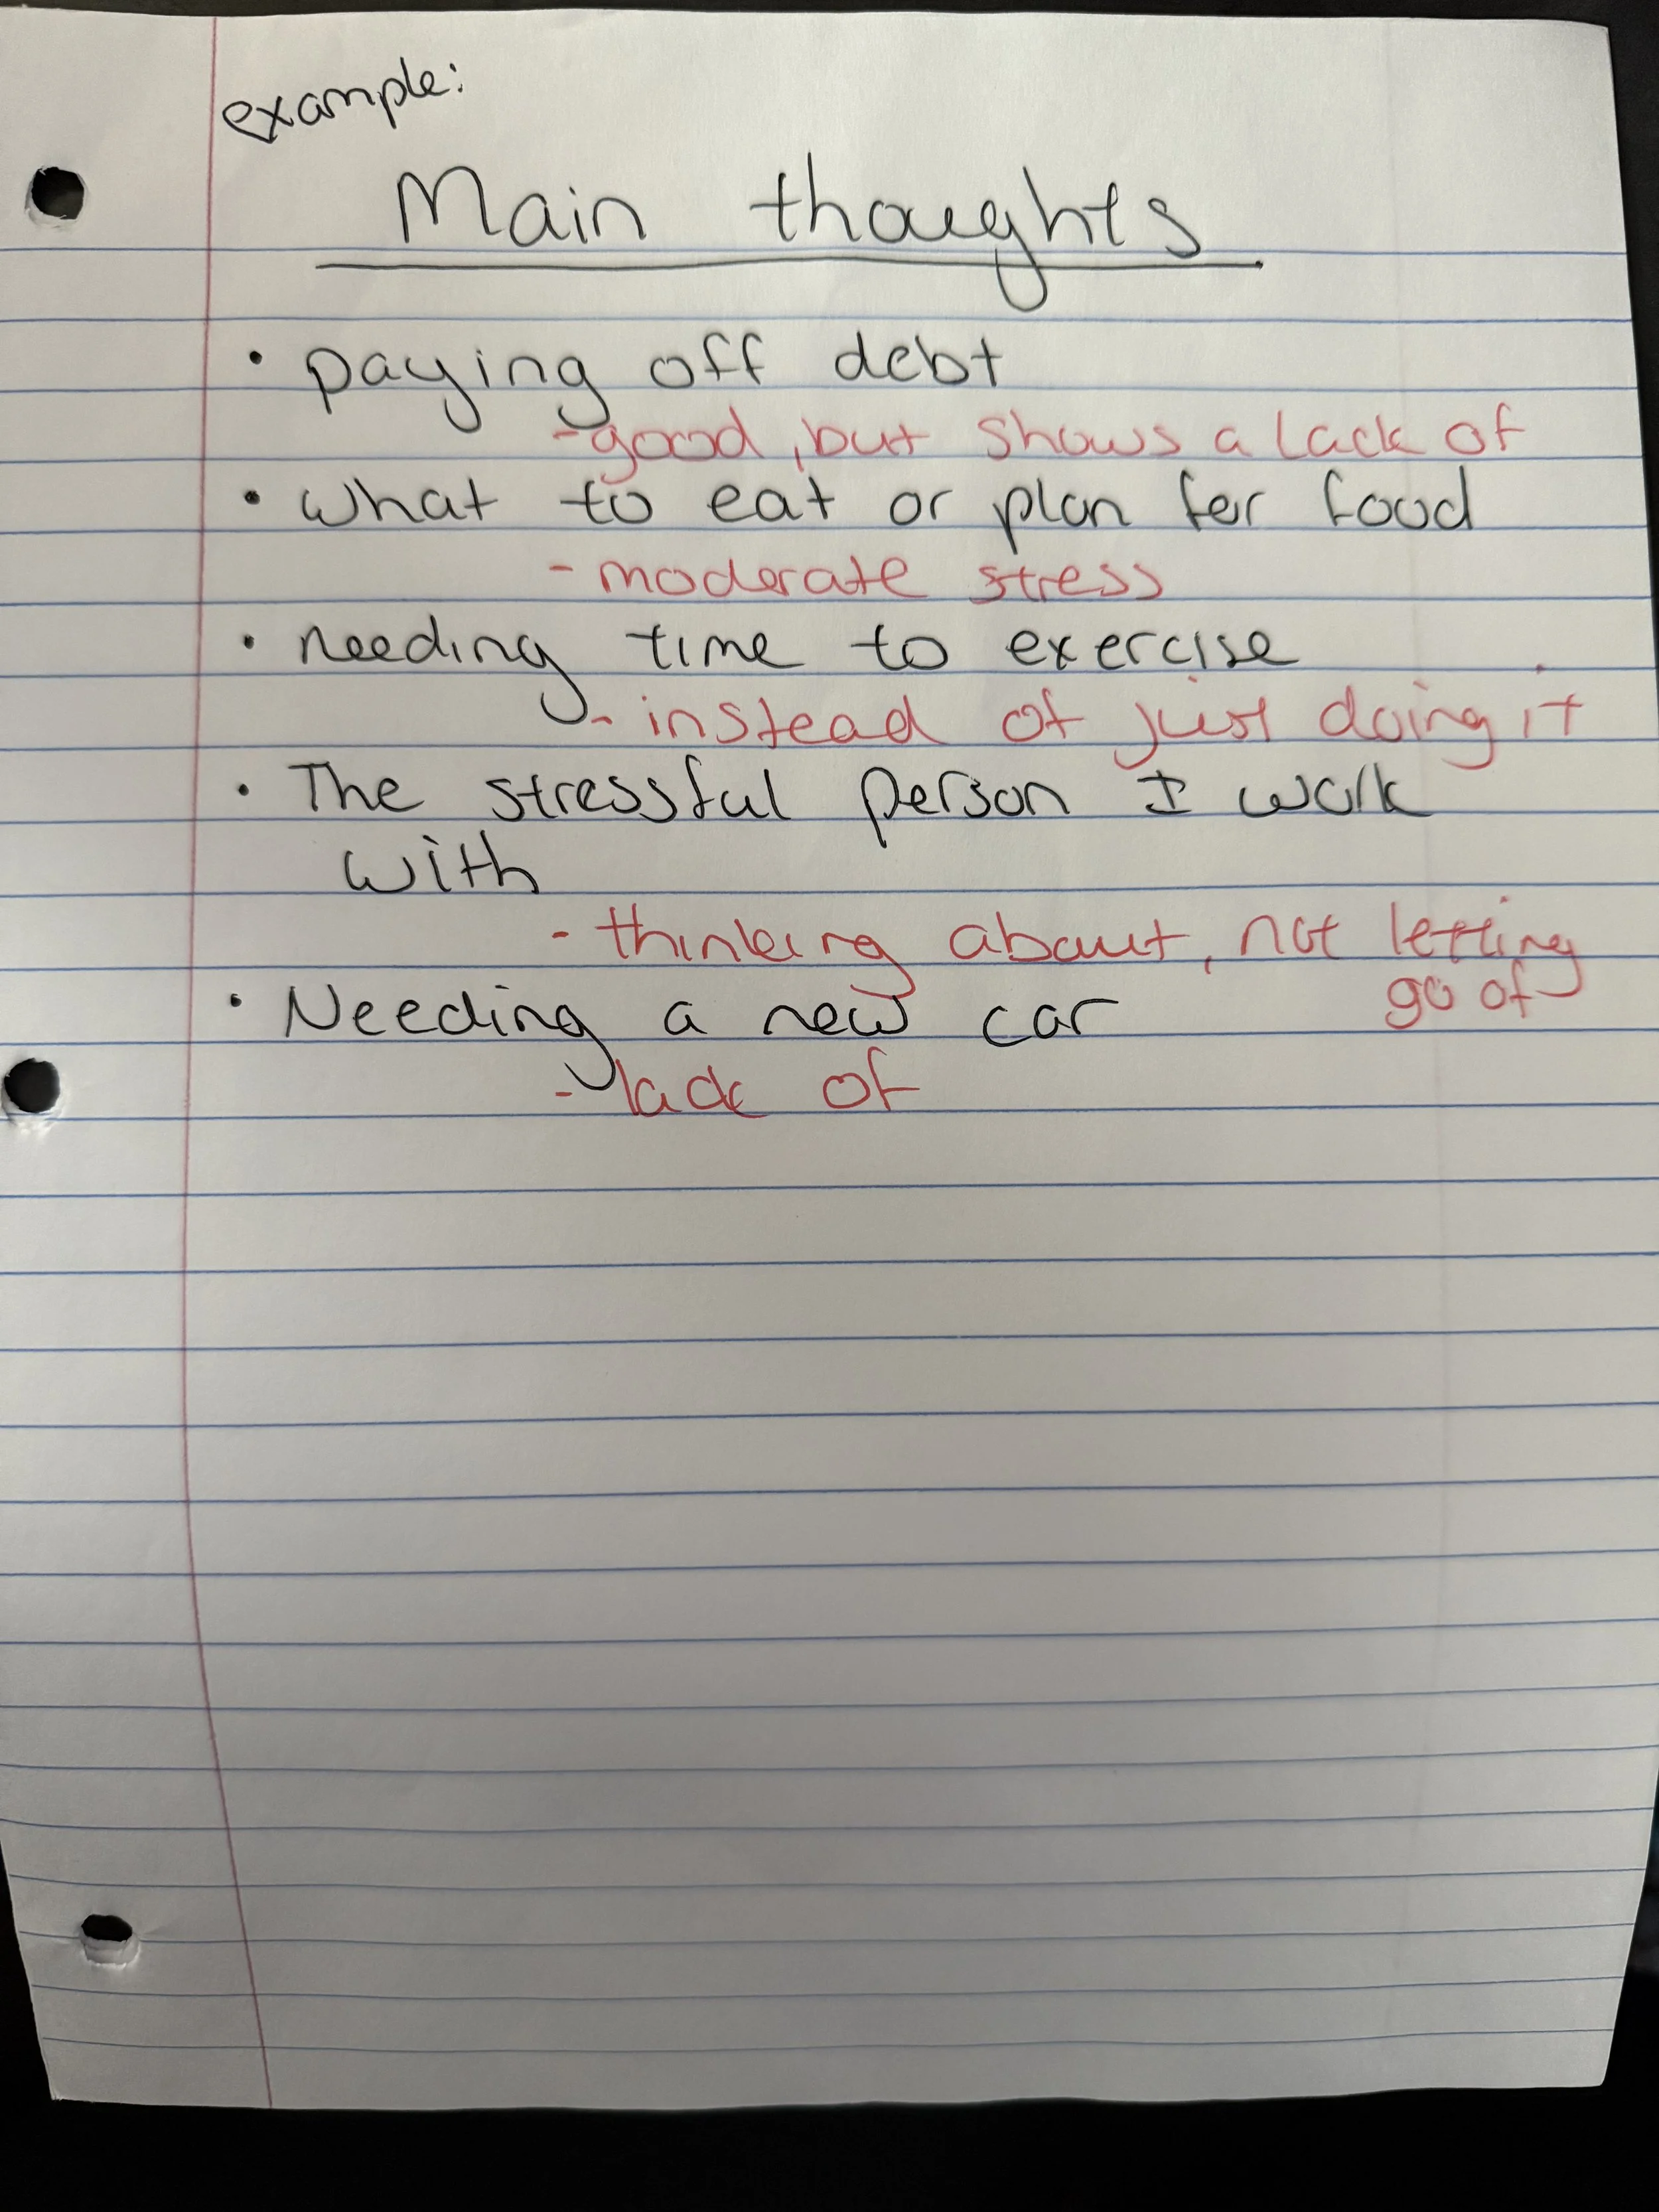 example:
Main thoughts
• paying off debt
-good, but shows a lack of
• what to eat or plan for food
- moderate stress
• needing time to exercise
- instead of just doing it
• The stressful person I work
with
- thinking about, not letting
go of
• Needing a new car
- lack of